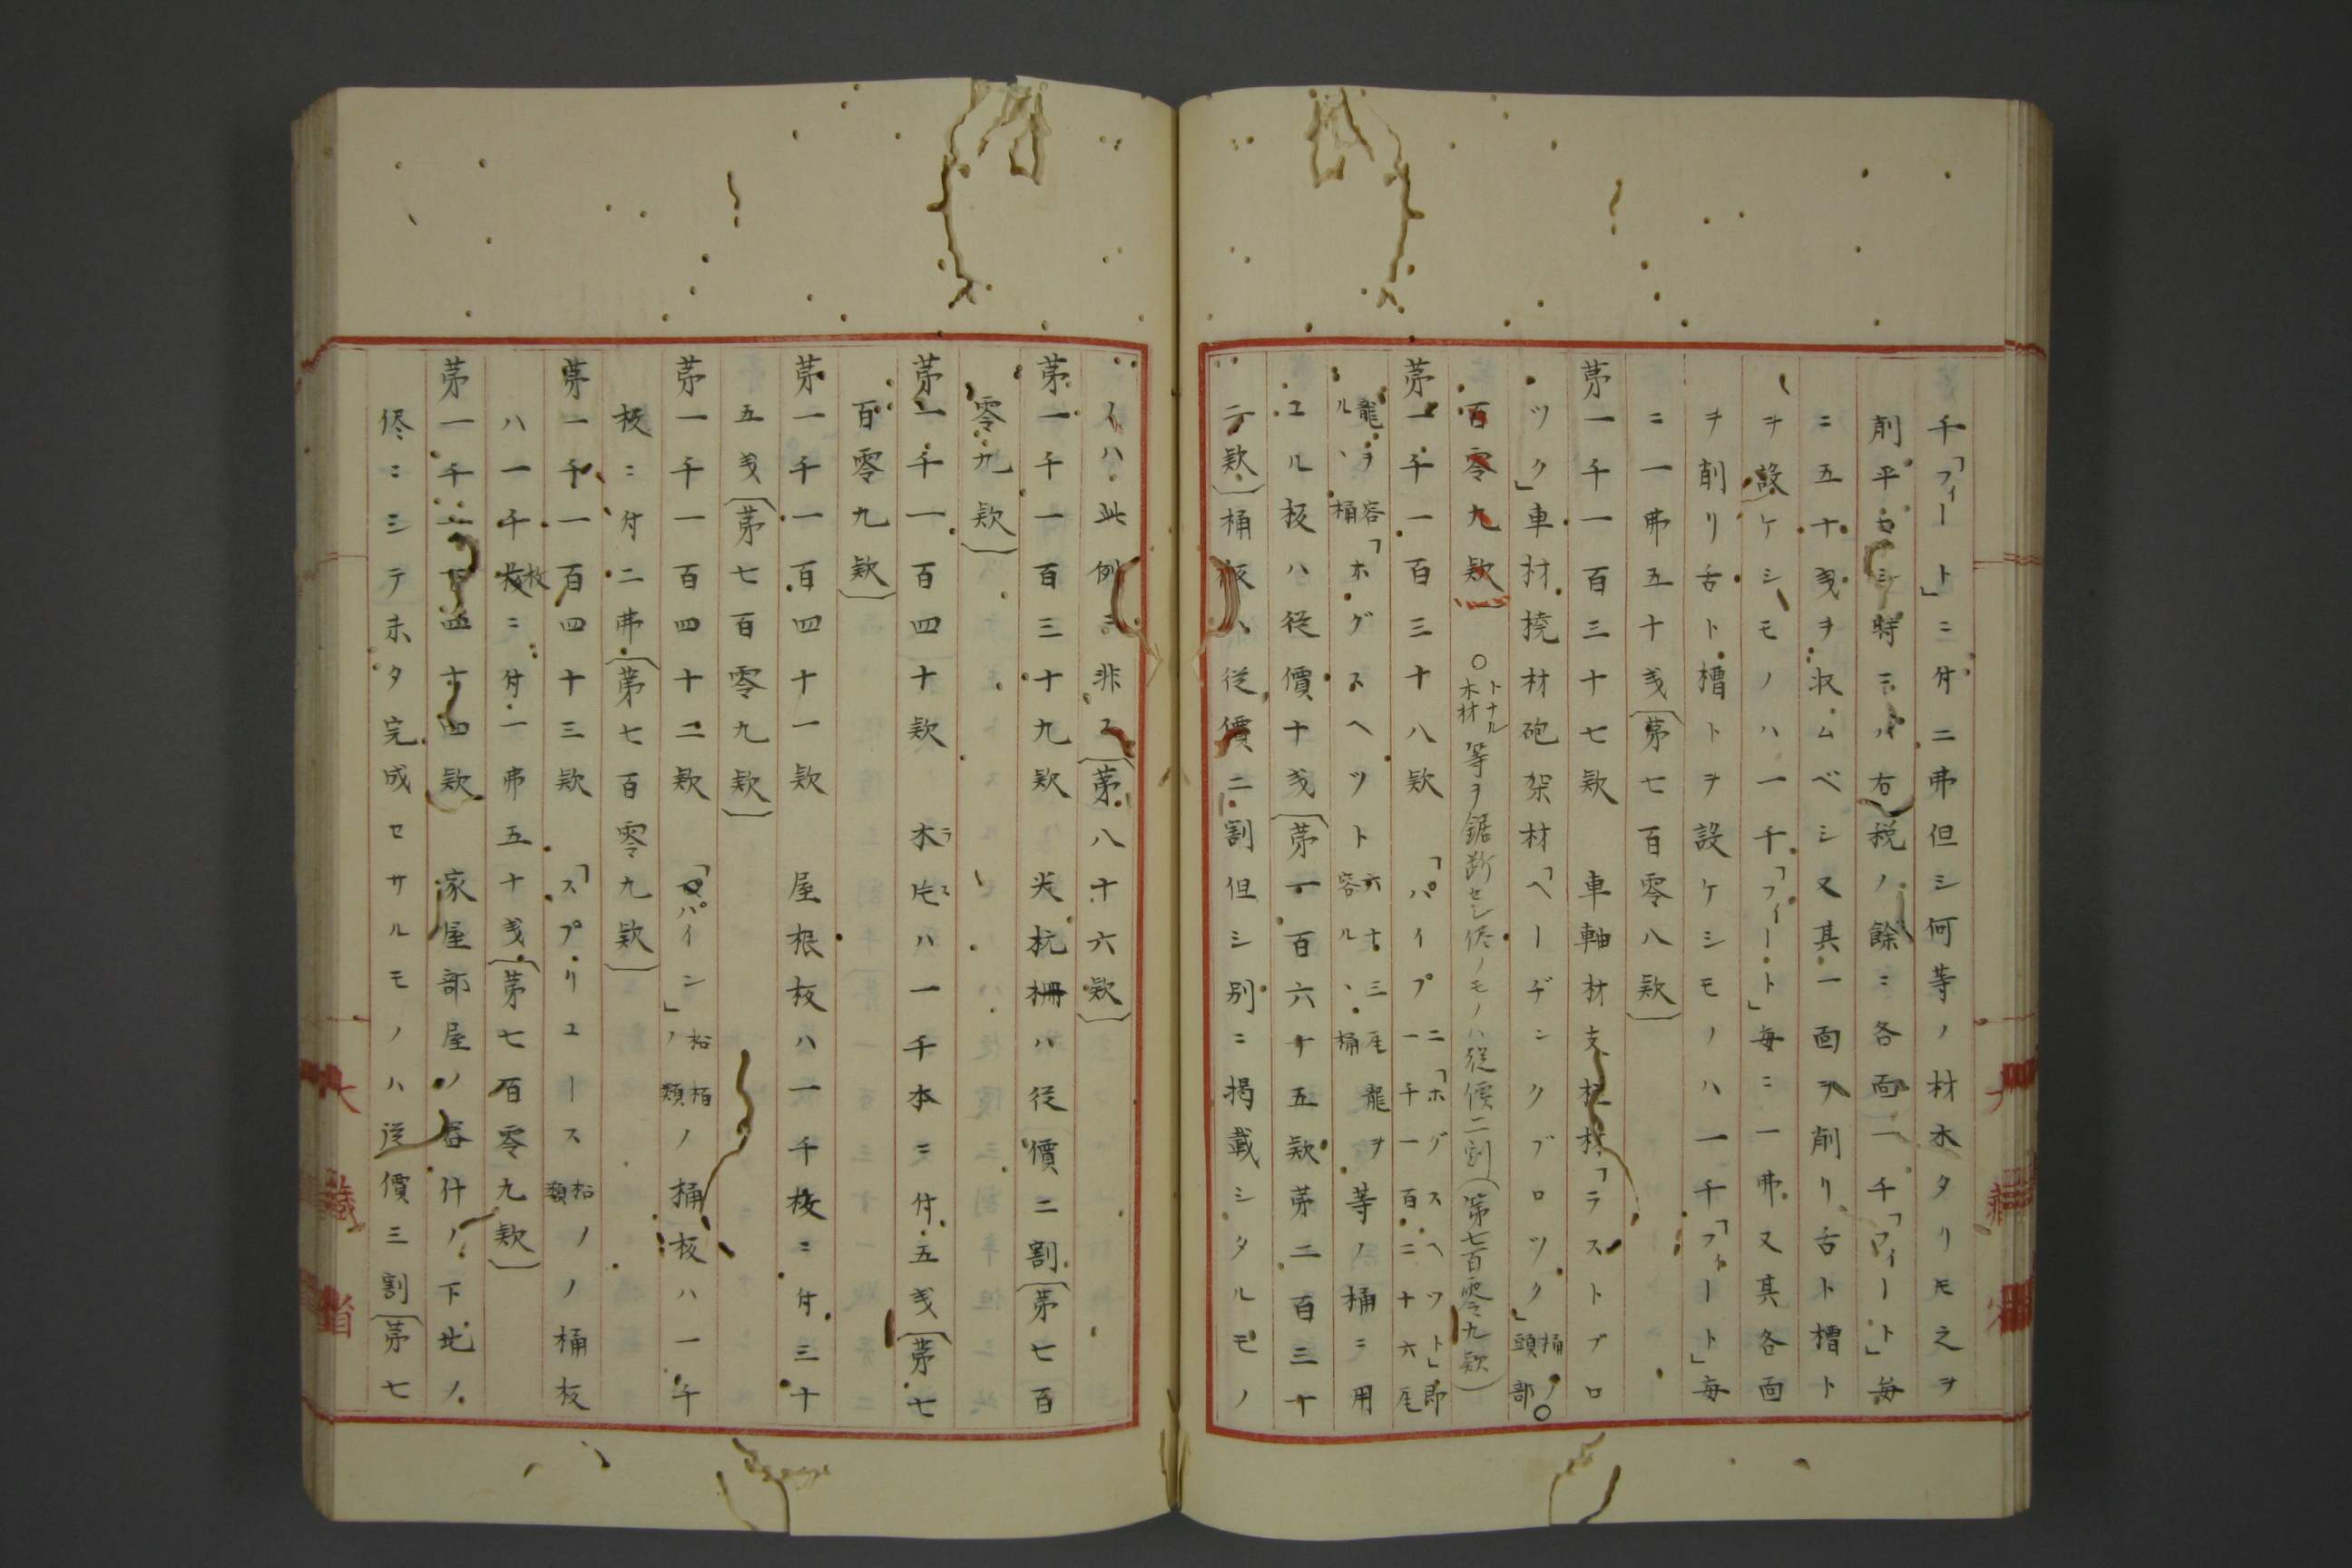 千「フィート」ニ付二弗但シ何等ノ材木タリ𪜈之ヲ
削平セシ時ニハ右税ノ餘ニ各面一千「フィート」毎
ニ五十戔ヲ収ムベシ又其一面ヲ削リ舌ト槽ト
ヲ設ケシモノハ一千「フィート」毎ニ一弗又其各面
ヲ削リ舌ト槽トヲ設ケシモノハ一千「フィート」毎
ニ一弗五十戔(第七百零八欵)
第一千一百三十七欵　車軸材支柱材「ラストブロ
ツク」車材撓材砲架材「ヘーヂンクブロツク」桶ノ頭部○
○トナル木材等ヲ鋸断セシ侭ノモノハ從價二割(第七百零九欵)
百零九欵)
第一千一百三十八欵　「パイプ」一千一百二十六尾龍ヲ容ルヽ桶
「ホグスヘツト」即六十三尾龍ヲ容ルヽ桶等ノ桶ニ用
ユル板ハ從價十戔(第一百六十五欵第二百三十
二欵)桶板ハ從價二割但シ別ニ掲載シタルモノ
ハ此例ニ非ス(第八十六欵)
第一千一百三十九欵　尖杭柵ハ從價二割(第七百
零九欵)
第一千一百四十欵　木片ラスハ一千本ニ付五戔(第七
百零九欵)
第一千一百四十一欵　屋根板ハ一千枚ニ付三十
五戔(第七百零九欵)
第一千一百四十二欵　「パイン」松柏ノ類ノ桶板ハ一千
板ニ付二弗(第七百零九欵)
第一千一百四十三欵　「スプリユース松ノ類ノ桶板
ハ一千枚ニ付一弗五十戔(第七百零九欵)
第一千一百四十四欵　家屋部屋ノ什ノ下地ノ
侭ニシテ未タ完成セサルモノハ從價三割(第七
大藏省